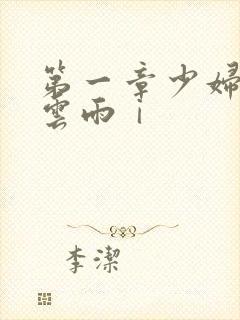 第一章少婦
雲雨｜
李潔